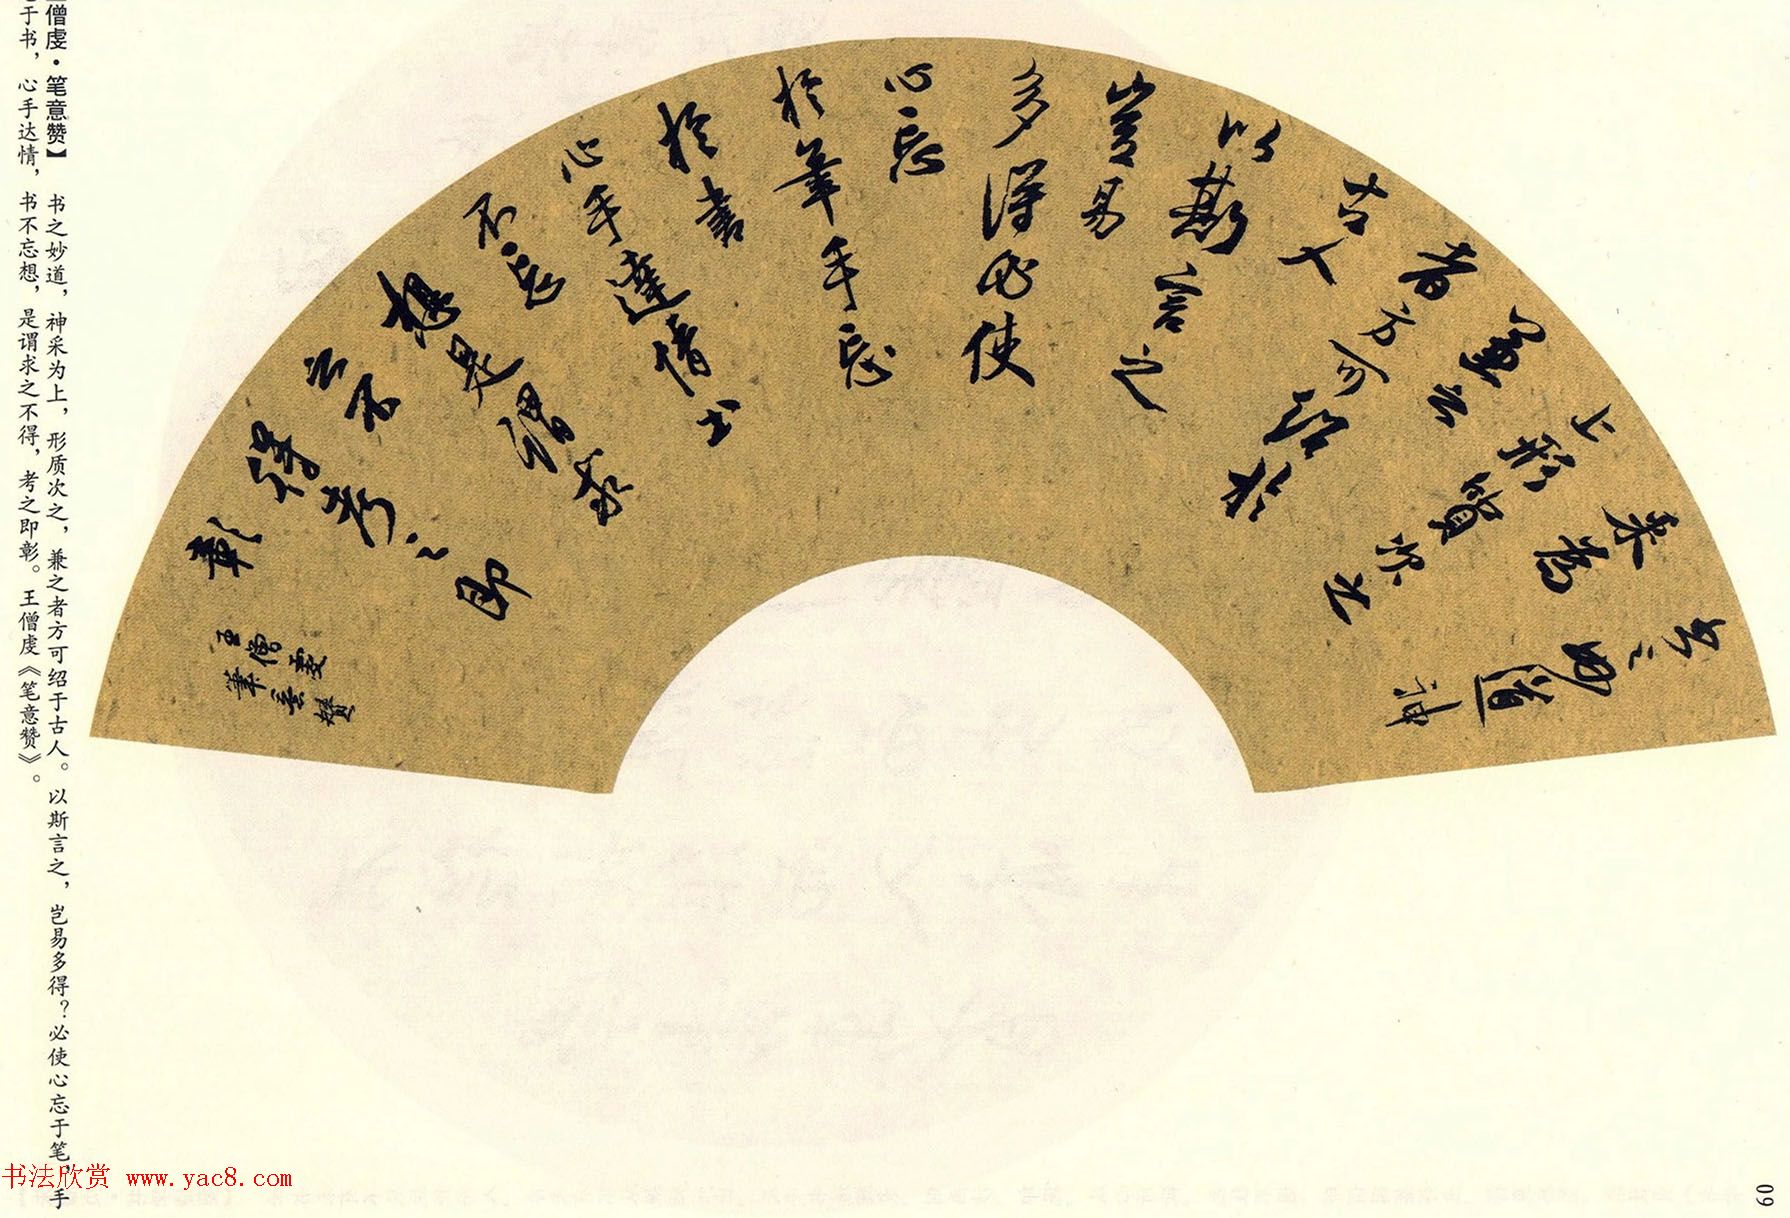 书之妙道神
采为上形質次之
兼之者方可紹於
古人
以斯言之
豈易
多得必使
心忘
於筆手忘
於書
心手達情书
不忘
想是謂求
之不得考之即
彰
王僧虔
筆意赞
王僧虔·笔意赞】 书之妙道，神采为上，形质次之，兼之者方可绍于古人。以斯言之，岂易多得？必使心忘于笔，手
忘于书，心手达情，书不忘想，是谓求之不得，考之即彰。王僧虔《笔意赞》。
书法欣赏 www.yac8.com
09